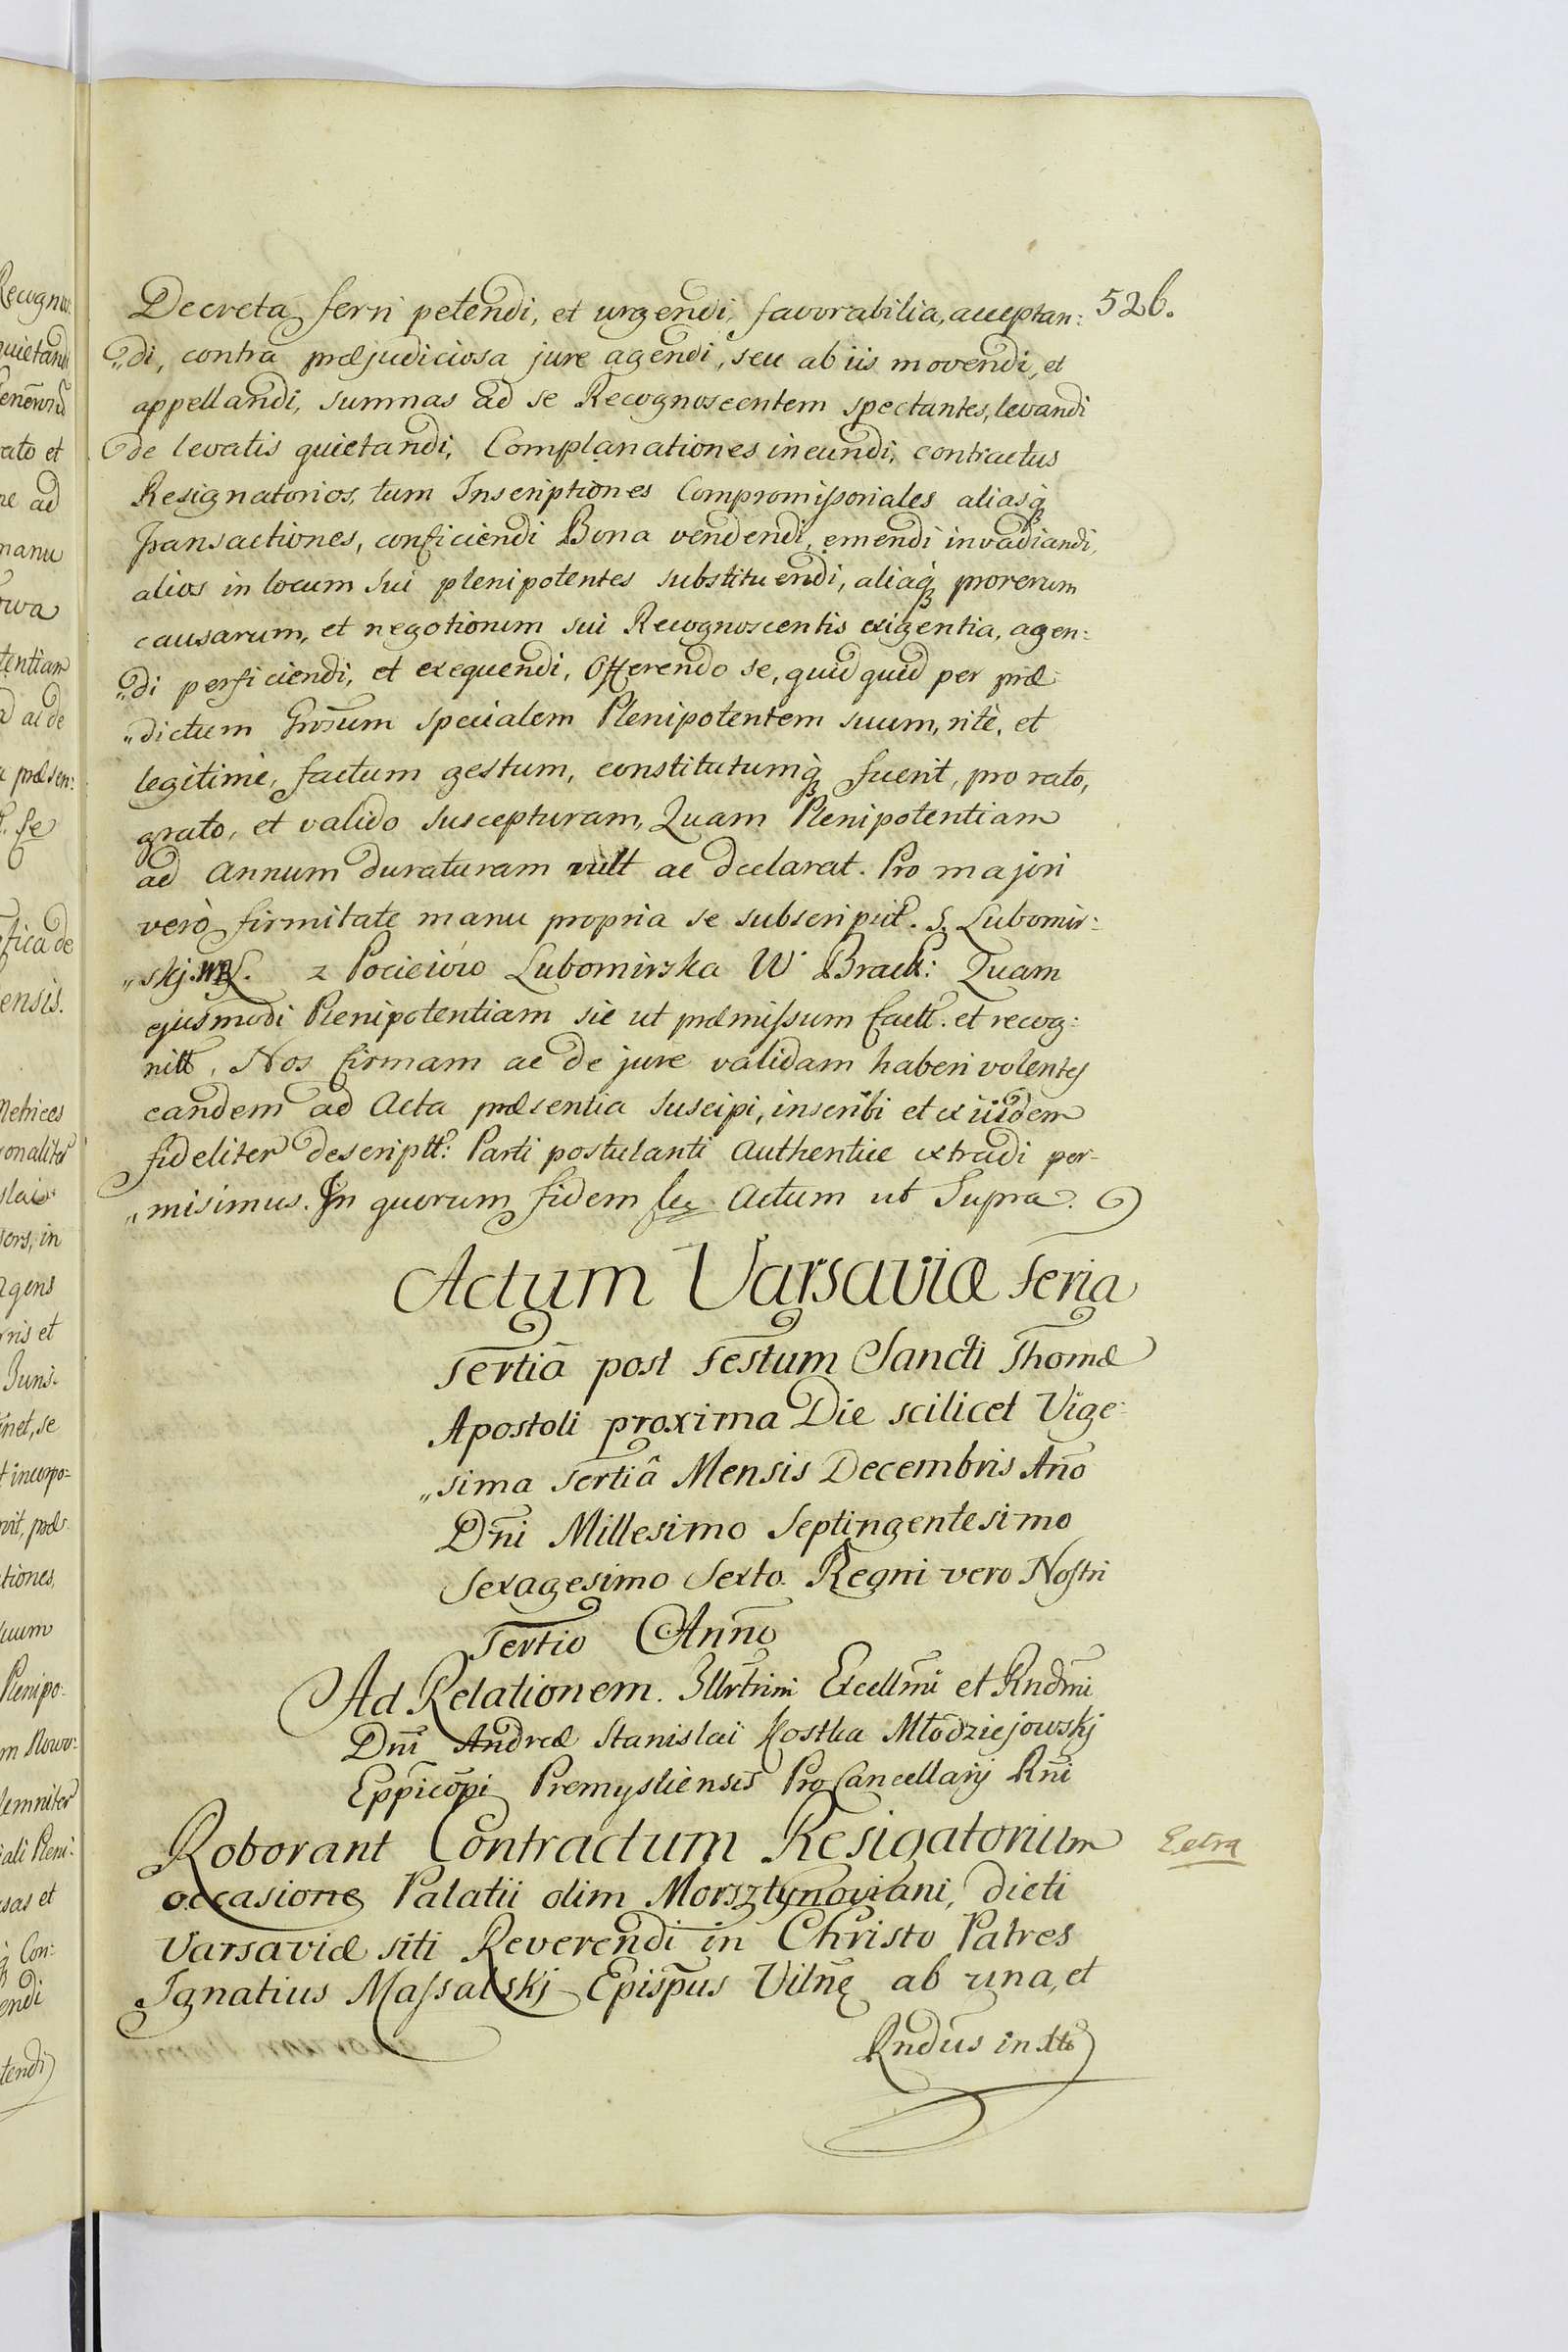 526.
Decreta ferri petendi, et urgendi, favorabilia, acceptan:
"di, contra præjudiciosa jure agendi, seu ab iis movendi, et
appellandi, summas ad se Recognoscentem spectantes, levandi
de levatis quietandi, Complanationes ineundi, contractus
Resignatorios, tum Inscriptiones Compromissoriales aliasq̃
Transactiones, conficiendi Bona vendendi, emendi invadiandi,
alios in locum sui plenipotentes substituendi, aliaq̃ prorerum
causarum, et negotiorum sui Recognoscentis exigentia, agen:
"di perficiendi, et exequendi, Offerendo se, quidquid per præ
"dictum Grosum specialem Plenipotentem suum, ritè, et
legitimè, factum gestum, constitutumq̃ fuerit, pro rato,
grato, et valido suscepturam, Quam Plenipotentiam
ad Annum duraturam vult ac declarat. Pro majori
verò firmitate manu propria se subscripsit. S. Lubomir:
"skj. z Pocieiów Lubomirska W Brack: Quam
ejusmodi Plenipotentiam sic ut præmissum factt. et recog:
nitt, Nos firmam ac de jure validam haberi volentes
eandem ad Acta præsentia suscipi, inscribi et ex iisdem
fideliter descriptt: Parti postulanti Authentice extradi per-
"misimus. In quorum fidem etc Actum ut Supra.
Actum Varsaviæ Feria
Tertiâ post Festum Sancti Thomæ
Apostoli proxima Die scilicet Vige-
"sima Tertiâ Mensis Decembris Año
Dñi Millesimo Septingentesimo
Sexagesimo Sexto. Regni vero Nostri
Tertio Anño
Ad Relationem. Illrtñimi Excellm̃i et Rndm̃i
Dnĩ Andreæ Stanislai Kostka Młodziejowskj
Eppicopi Premysliensis ProCancellarij Rñi
Roborant Contractum Resigatorium
Extra
occasione Palatii olim Morsztynoviani, dicti
Varsaviæ siti Reverendi in Christo Patres
Ignatius Massalskj Epispus Vilnẽ ab una, et
Rndus in Xto